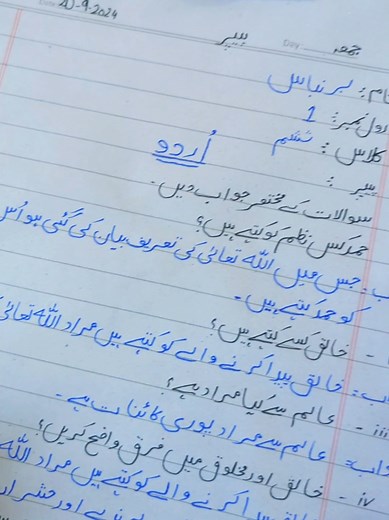 Date 20-9-2024
Day جمعہ
پیپر
نام: برنباس
رول نمبر: 1
کلاس: ششم
اُردو
پیپر:
سوالات کے مختصر جواب دیں۔
حمد کس نظم کو کہتے ہیں؟
جس میں اللہ تعالیٰ کی تعریف بیان کی گئی ہو اُس
کو حمد کہتے ہیں۔
خالق کسے کہتے ہیں؟
خالق پیدا کرنے والے کو کہتے ہیں مراد اللہ تعالیٰ
iii- عالم سے کیا مراد ہے؟
جواب: عالم سے مراد پوری کائنات ہے۔
iv- خالق اور مخلوق میں فرق واضح کریں؟
خالق پیدا کرنے والے کو کہتے ہیں مراد اللہ